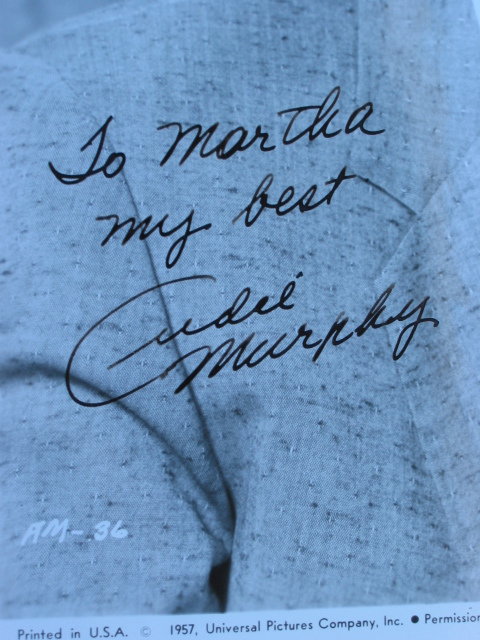 To Martha
my best
Audie
Murphy
AM-36
Printed in U.S.A. © 1957, Universal Pictures Company, Inc. ● Permission